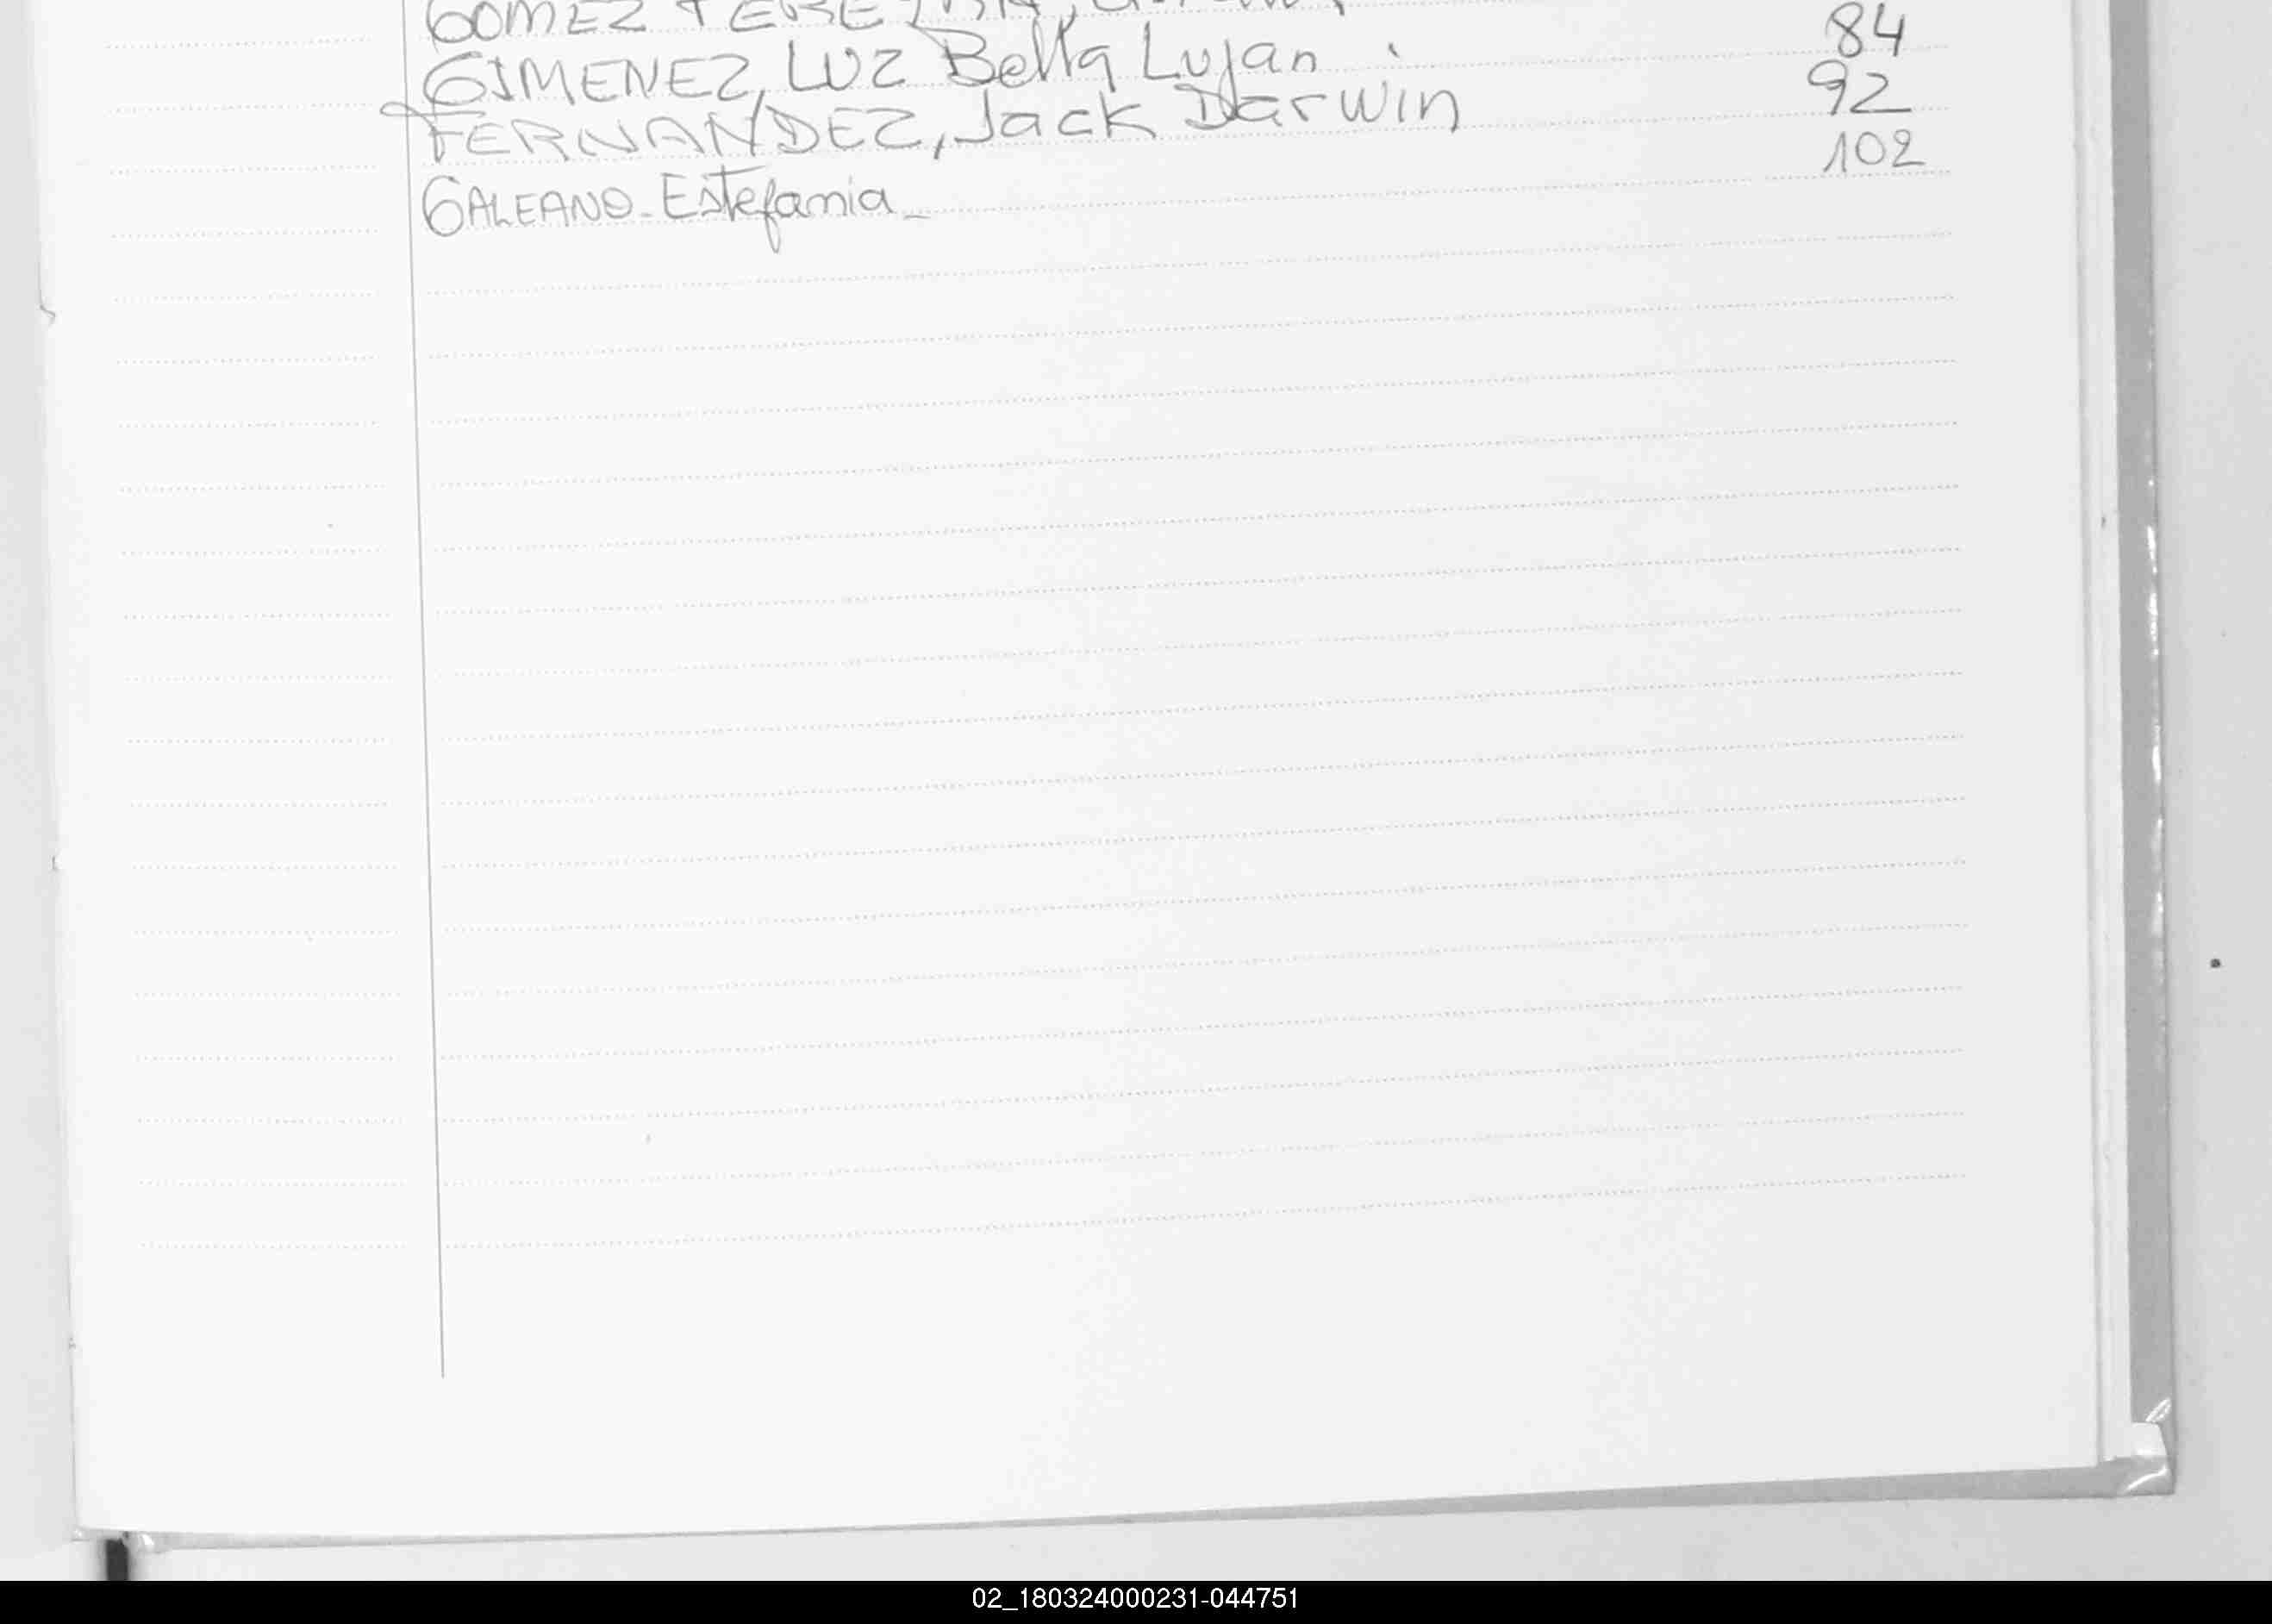 GOMEZ
GIMENEZ, LUZ Bella Lujan 84
FERNANDEZ, Jack Darwin 92
GALEANO - Estefania - 102
02_180324000231-044751